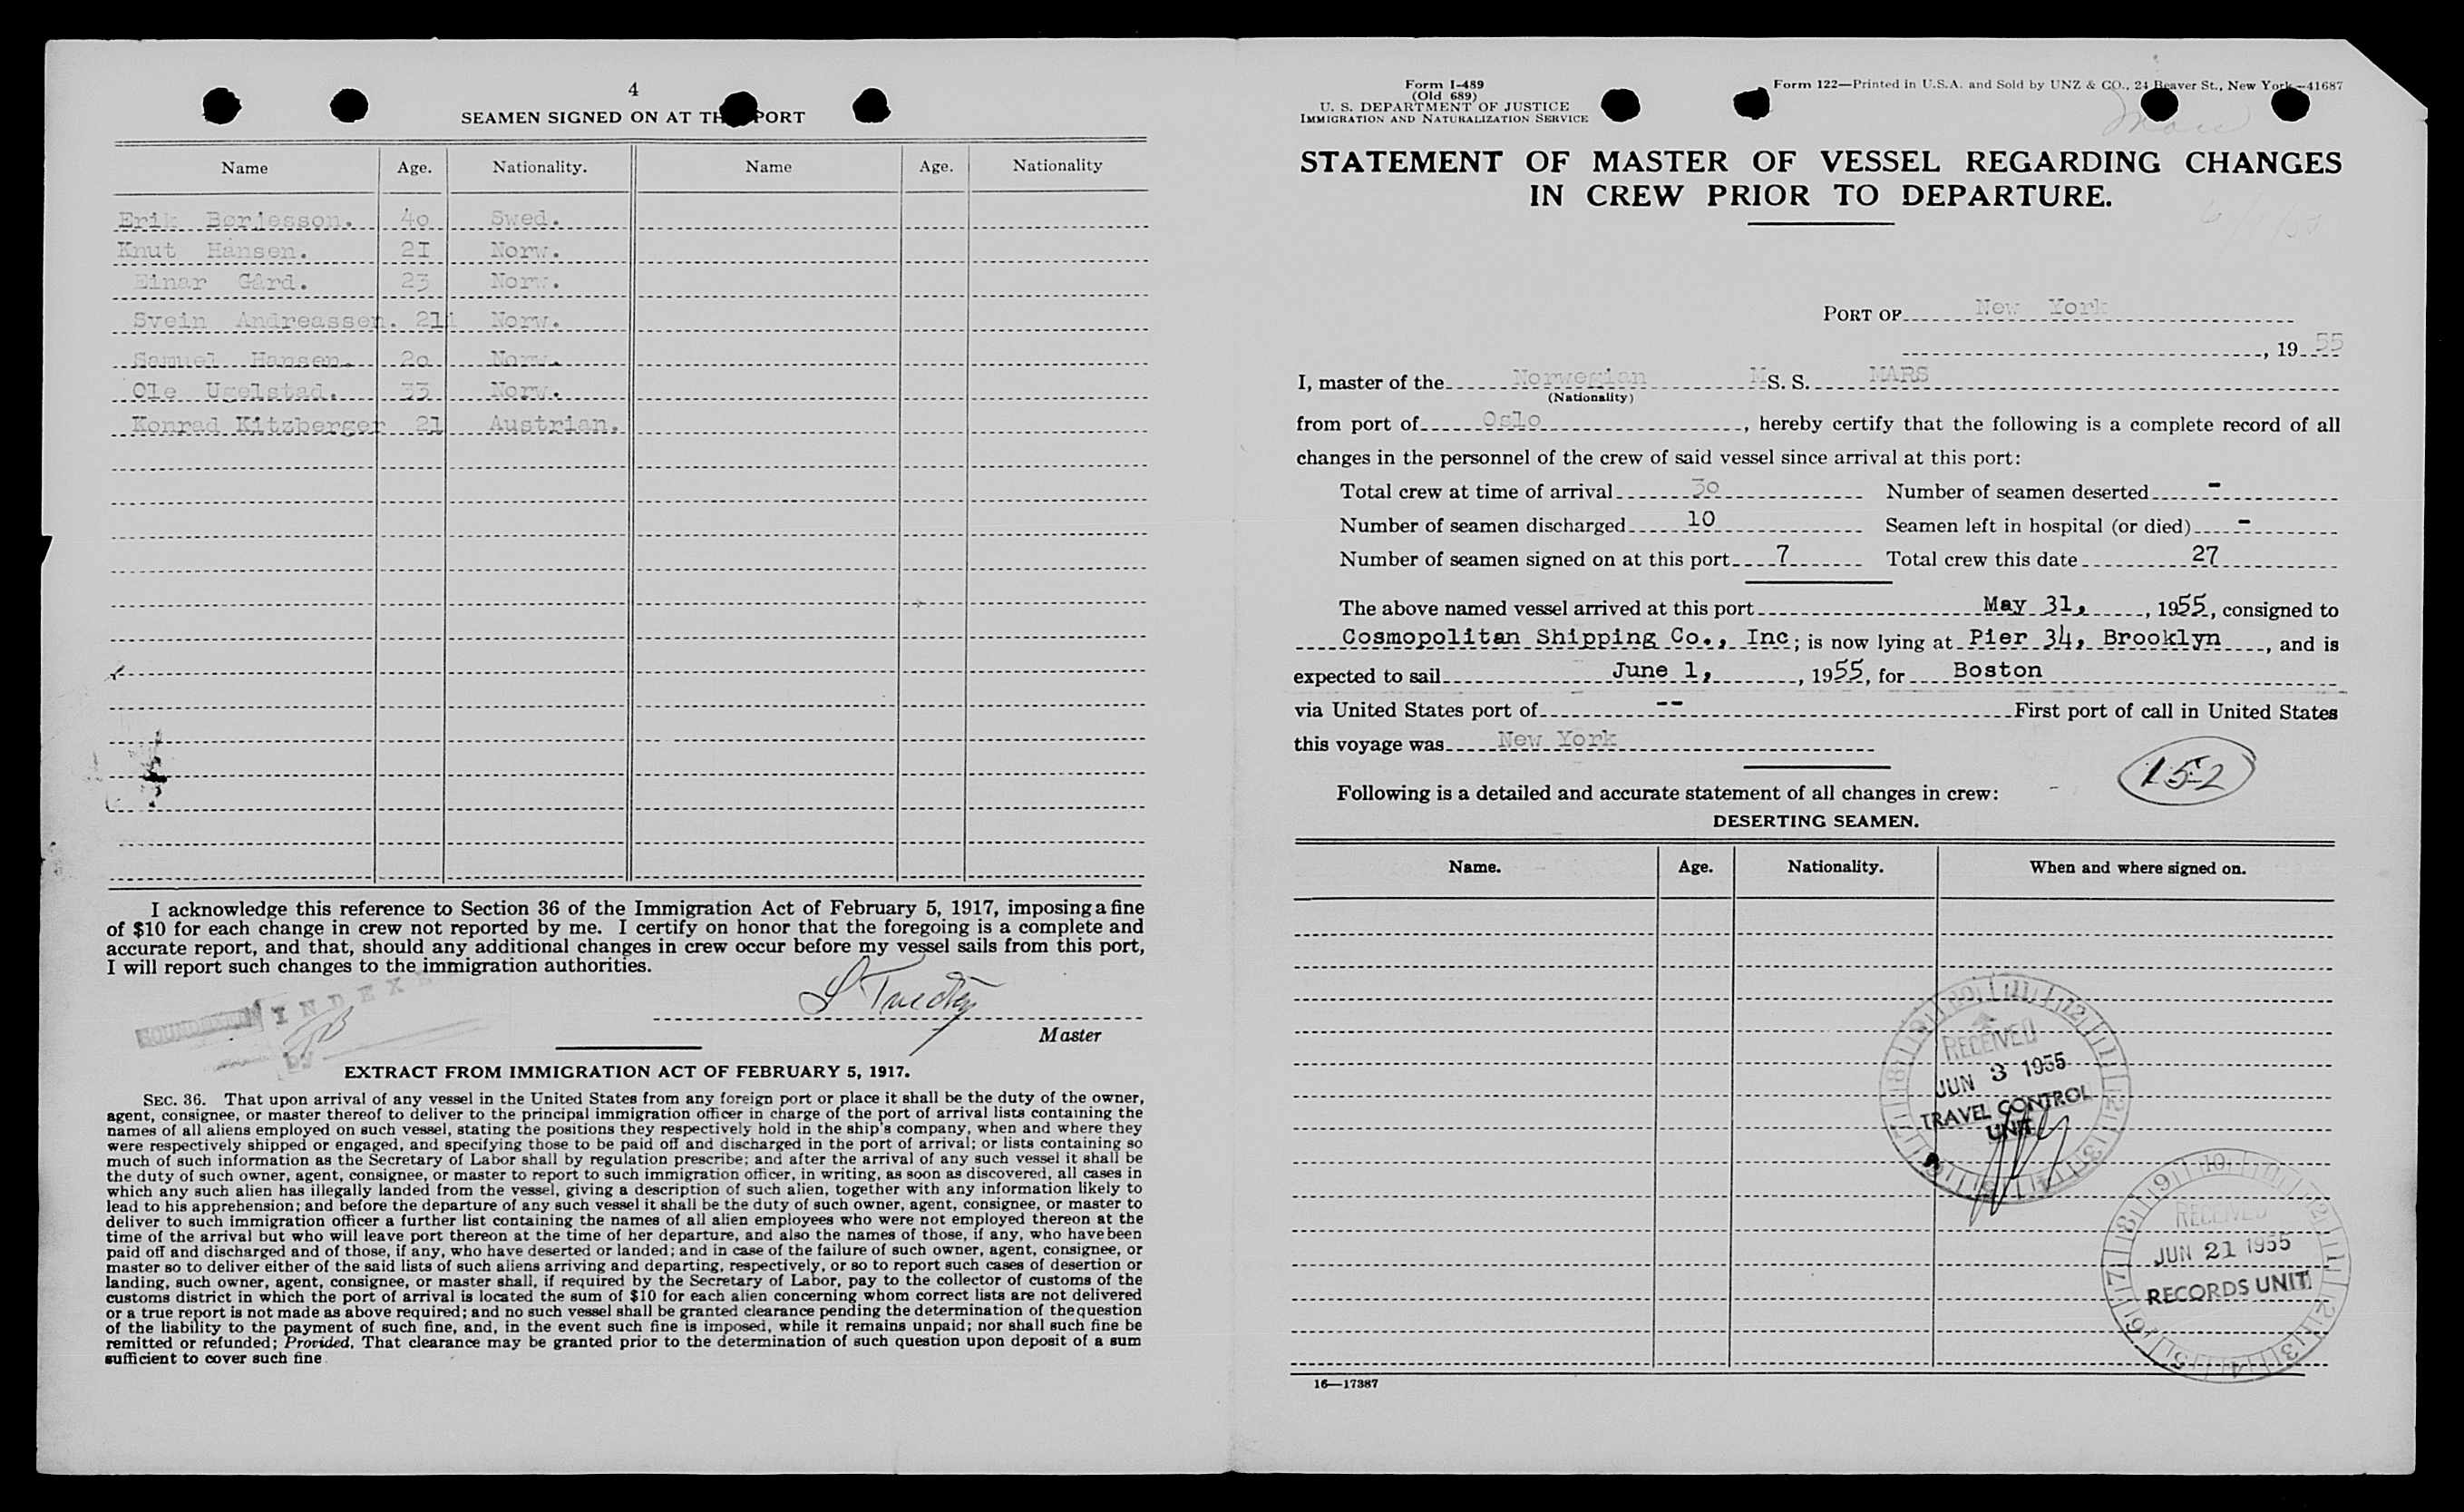 4
SEAMEN SIGNED ON AT TH PORT
Name Age. Nationality. Name Age. Nationality
Erik Børjesson. 40 Swed.
Knut Hansen. 21 Norw.
Einar Gård. 23 Norw.
Svein Andreassen. 21 Norw.
Samuel Hansen. 20 Norw.
Ole Ugelstad. 33 Norw.
Konrad Kitzberger 21 Austrian.
I acknowledge this reference to Section 36 of the Immigration Act of February 5, 1917, imposing a fine
of $10 for each change in crew not reported by me. I certify on honor that the foregoing is a complete and
accurate report, and that, should any additional changes in crew occur before my vessel sails from this port,
I will report such changes to the immigration authorities.
INDEXE
by
Master
EXTRACT FROM IMMIGRATION ACT OF FEBRUARY 5, 1917.
SEC. 36. That upon arrival of any vessel in the United States from any foreign port or place it shall be the duty of the owner,
agent, consignee, or master thereof to deliver to the principal immigration officer in charge of the port of arrival lists containing the
names of all aliens employed on such vessel, stating the positions they respectively hold in the ship's company, when and where they
were respectively shipped or engaged, and specifying those to be paid off and discharged in the port of arrival; or lists containing so
much of such information as the Secretary of Labor shall by regulation prescribe; and after the arrival of any such vessel it shall be
the duty of such owner, agent, consignee, or master to report to such immigration officer, in writing, as soon as discovered, all cases in
which any such alien has illegally landed from the vessel, giving a description of such alien, together with any information likely to
lead to his apprehension; and before the departure of any such vessel it shall be the duty of such owner, agent, consignee, or master to
deliver to such immigration officer a further list containing the names of all alien employees who were not employed thereon at the
time of the arrival but who will leave port thereon at the time of her departure, and also the names of those, if any, who have been
paid off and discharged and of those, if any, who have deserted or landed; and in case of the failure of such owner, agent, consignee, or
master so to deliver either of the said lists of such aliens arriving and departing, respectively, or so to report such cases of desertion or
landing, such owner, agent, consignee, or master shall, if required by the Secretary of Labor, pay to the collector of customs of the
customs district in which the port of arrival is located the sum of $10 for each alien concerning whom correct lists are not delivered
or a true report is not made as above required; and no such vessel shall be granted clearance pending the determination of the question
of the liability to the payment of such fine, and, in the event such fine is imposed, while it remains unpaid; nor shall such fine be
remitted or refunded; Provided, That clearance may be granted prior to the determination of such question upon deposit of a sum
sufficient to cover such fine
Form I-489
(Old 689)
U. S. DEPARTMENT OF JUSTICE
IMMIGRATION AND NATURALIZATION SERVICE
Form 122—Printed in U.S.A. and Sold by UNZ & CO., 24 Beaver St., New York—41687
STATEMENT OF MASTER OF VESSEL REGARDING CHANGES
IN CREW PRIOR TO DEPARTURE.
PORT OF New York
, 19 55
I, master of the Norwegian M S. S. MARS
(Nationality)
from port of Oslo, hereby certify that the following is a complete record of all
changes in the personnel of the crew of said vessel since arrival at this port:
Total crew at time of arrival 30 Number of seamen deserted -
Number of seamen discharged 10 Seamen left in hospital (or died) -
Number of seamen signed on at this port 7 Total crew this date 27
The above named vessel arrived at this port May 31, , 1955, consigned to
Cosmopolitan Shipping Co., Inc; is now lying at Pier 34, Brooklyn, and is
expected to sail June 1, , 1955, for Boston
via United States port of -- First port of call in United States
this voyage was New York
152
Following is a detailed and accurate statement of all changes in crew:
DESERTING SEAMEN.
Name. Age. Nationality. When and where signed on.
RECEIVED
JUN 3 1955
TRAVEL CONTROL
UNIT
RECEIVED
JUN 21 1955
RECORDS UNIT
16—17387